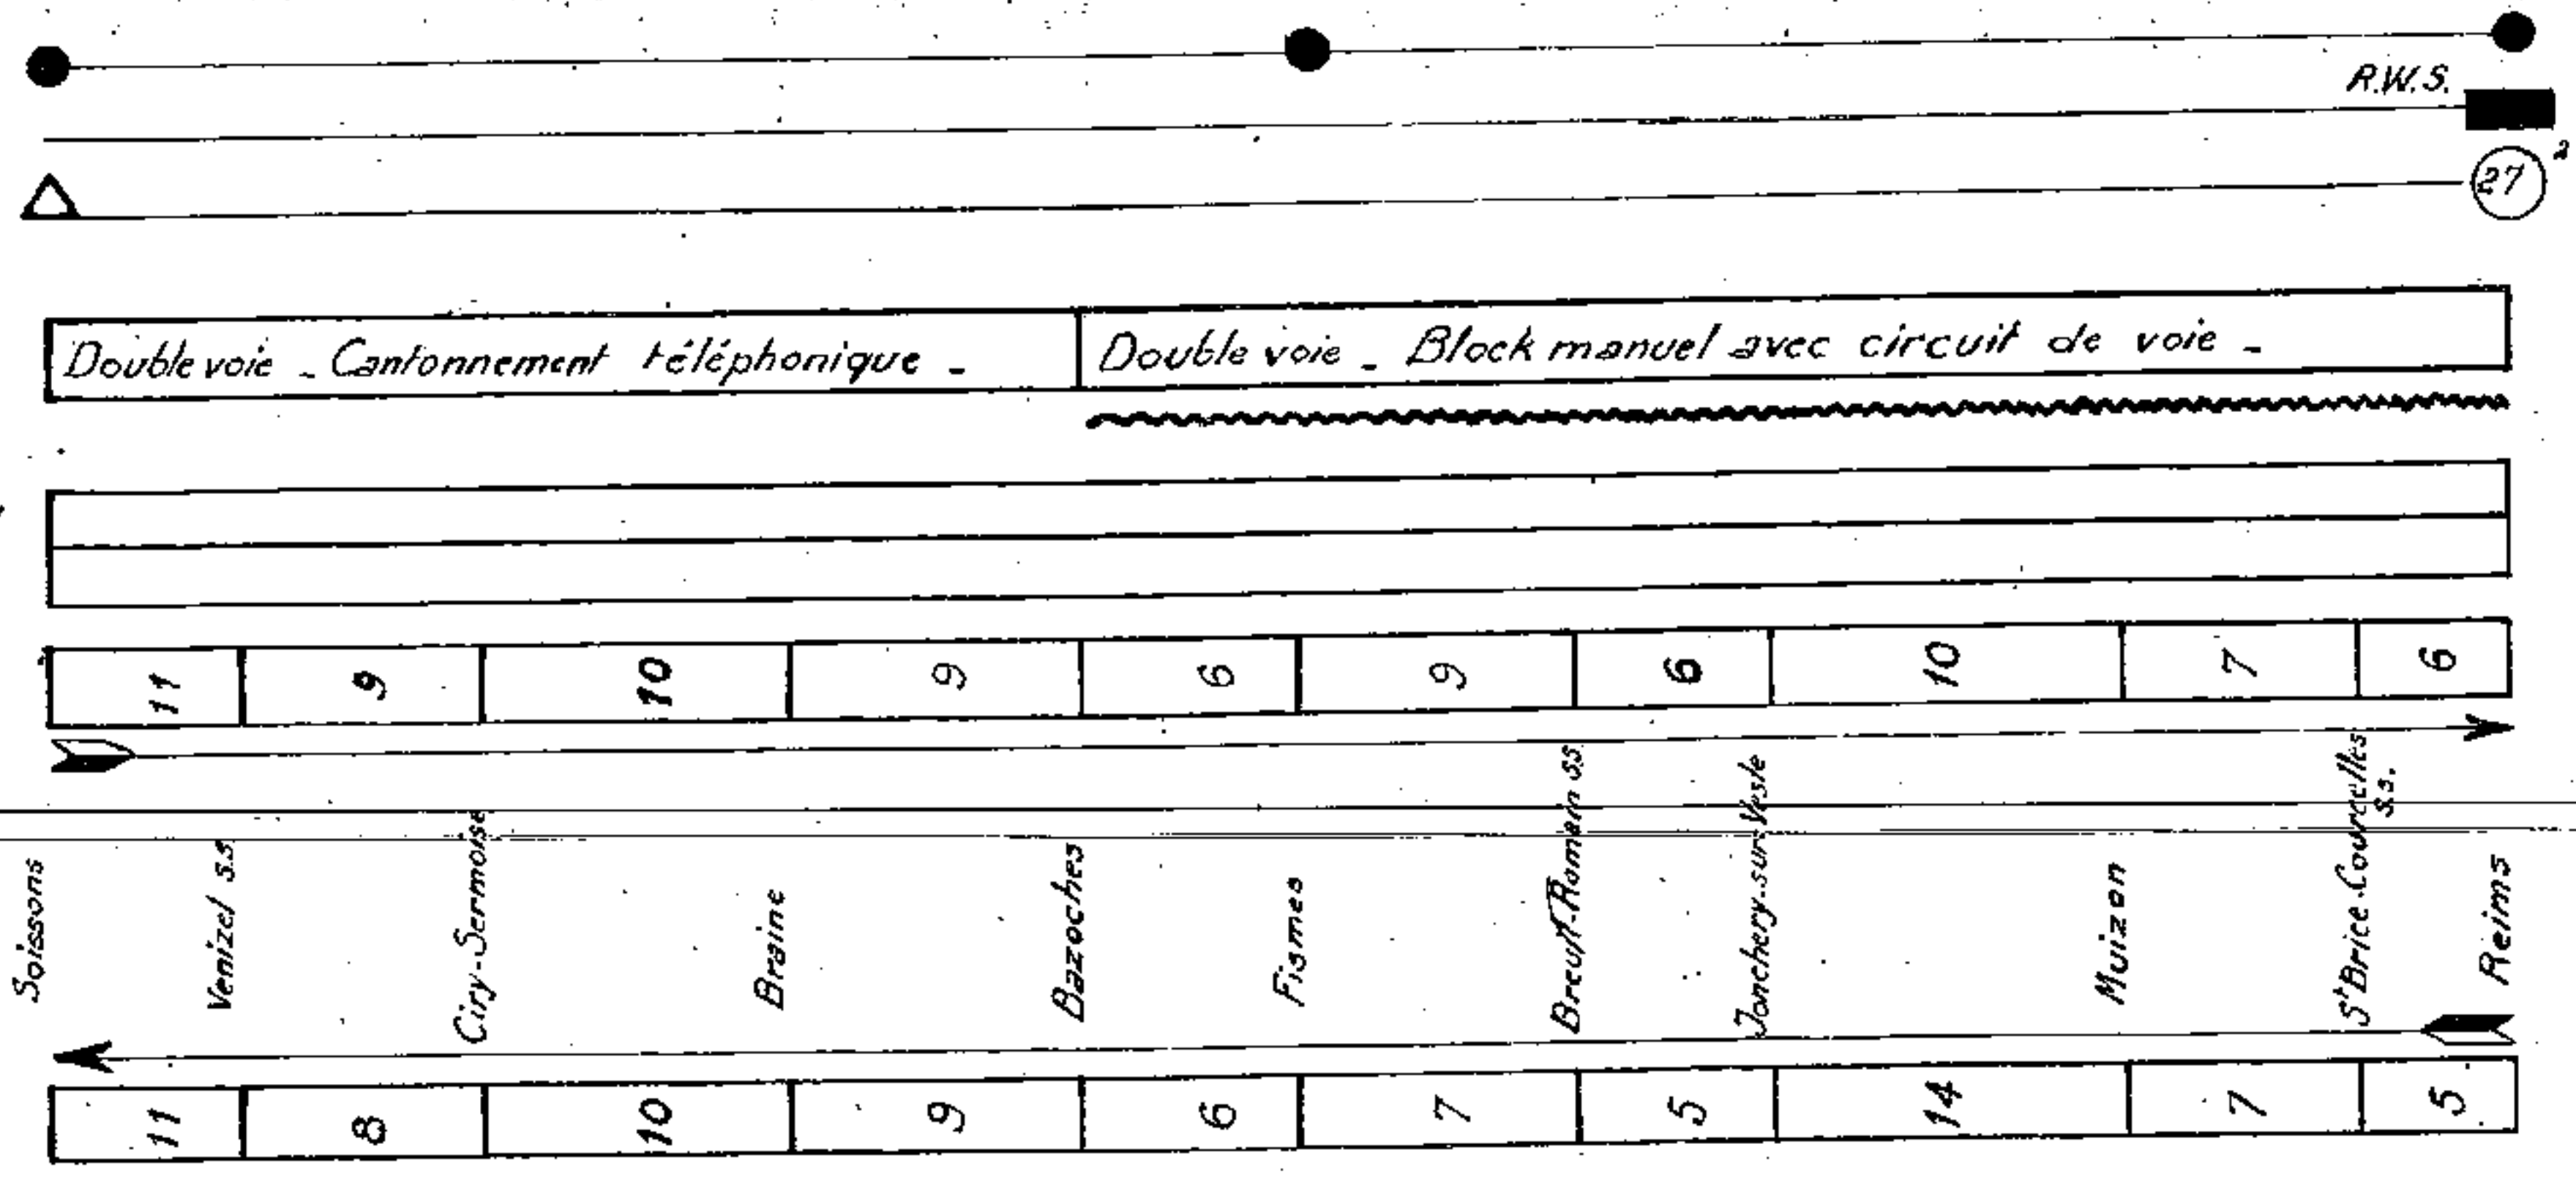 R.W.S.
27 2
Double voie - Cantonnement téléphonique -
Double voie - Block manuel avec circuit de voie -
11 9 10 9 6 9 6 10 7 6
Soissons
Venizel s.s
Ciry-Sermoise
Braine
Bazoches
Fismes
Breuil-Romain ss
Jonchery-sur-Vesle
Muizon
St Brice-Courcelles
s.s.
Reims
11 8 10 9 6 7 5 14 7 5